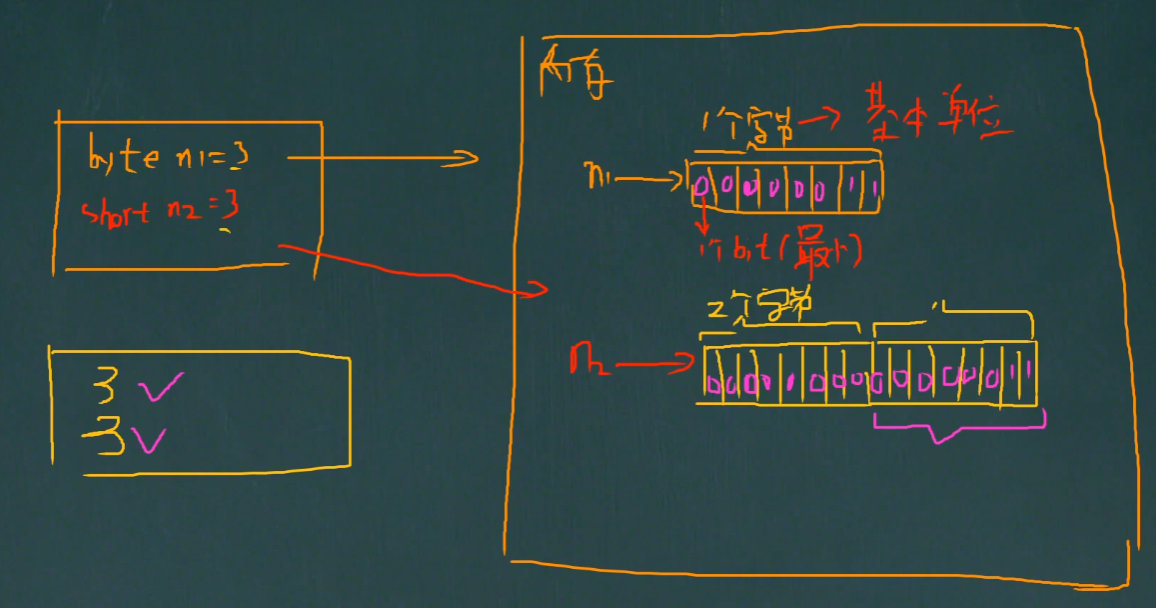 byte n1=3
short n2=3
3
3
内存
1个字节 → 基本单位
n1 → 0 0 0 0 0 0 1 1
1个bit(最小)
2个字节
n2 → 0 0 0 0 0 0 0 0 0 0 0 0 0 1 1